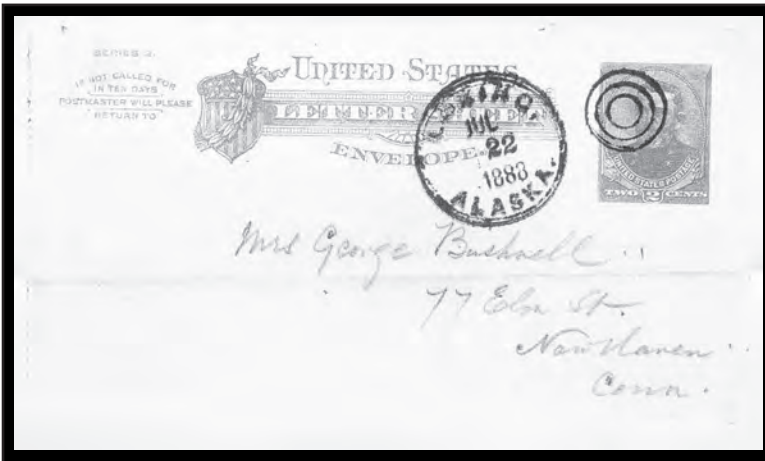 SERIES 2.
IF NOT CALLED FOR
IN TEN DAYS
POSTMASTER WILL PLEASE
RETURN TO
UNITED STATES
LETTER SHEET
ENVELOPE.
JUL
22
1883
ALASKA.
UNITED STATES POSTAGE
TWO 2 CENTS
Mrs George Bushnell
77 Elm St.
New Haven
Conn.